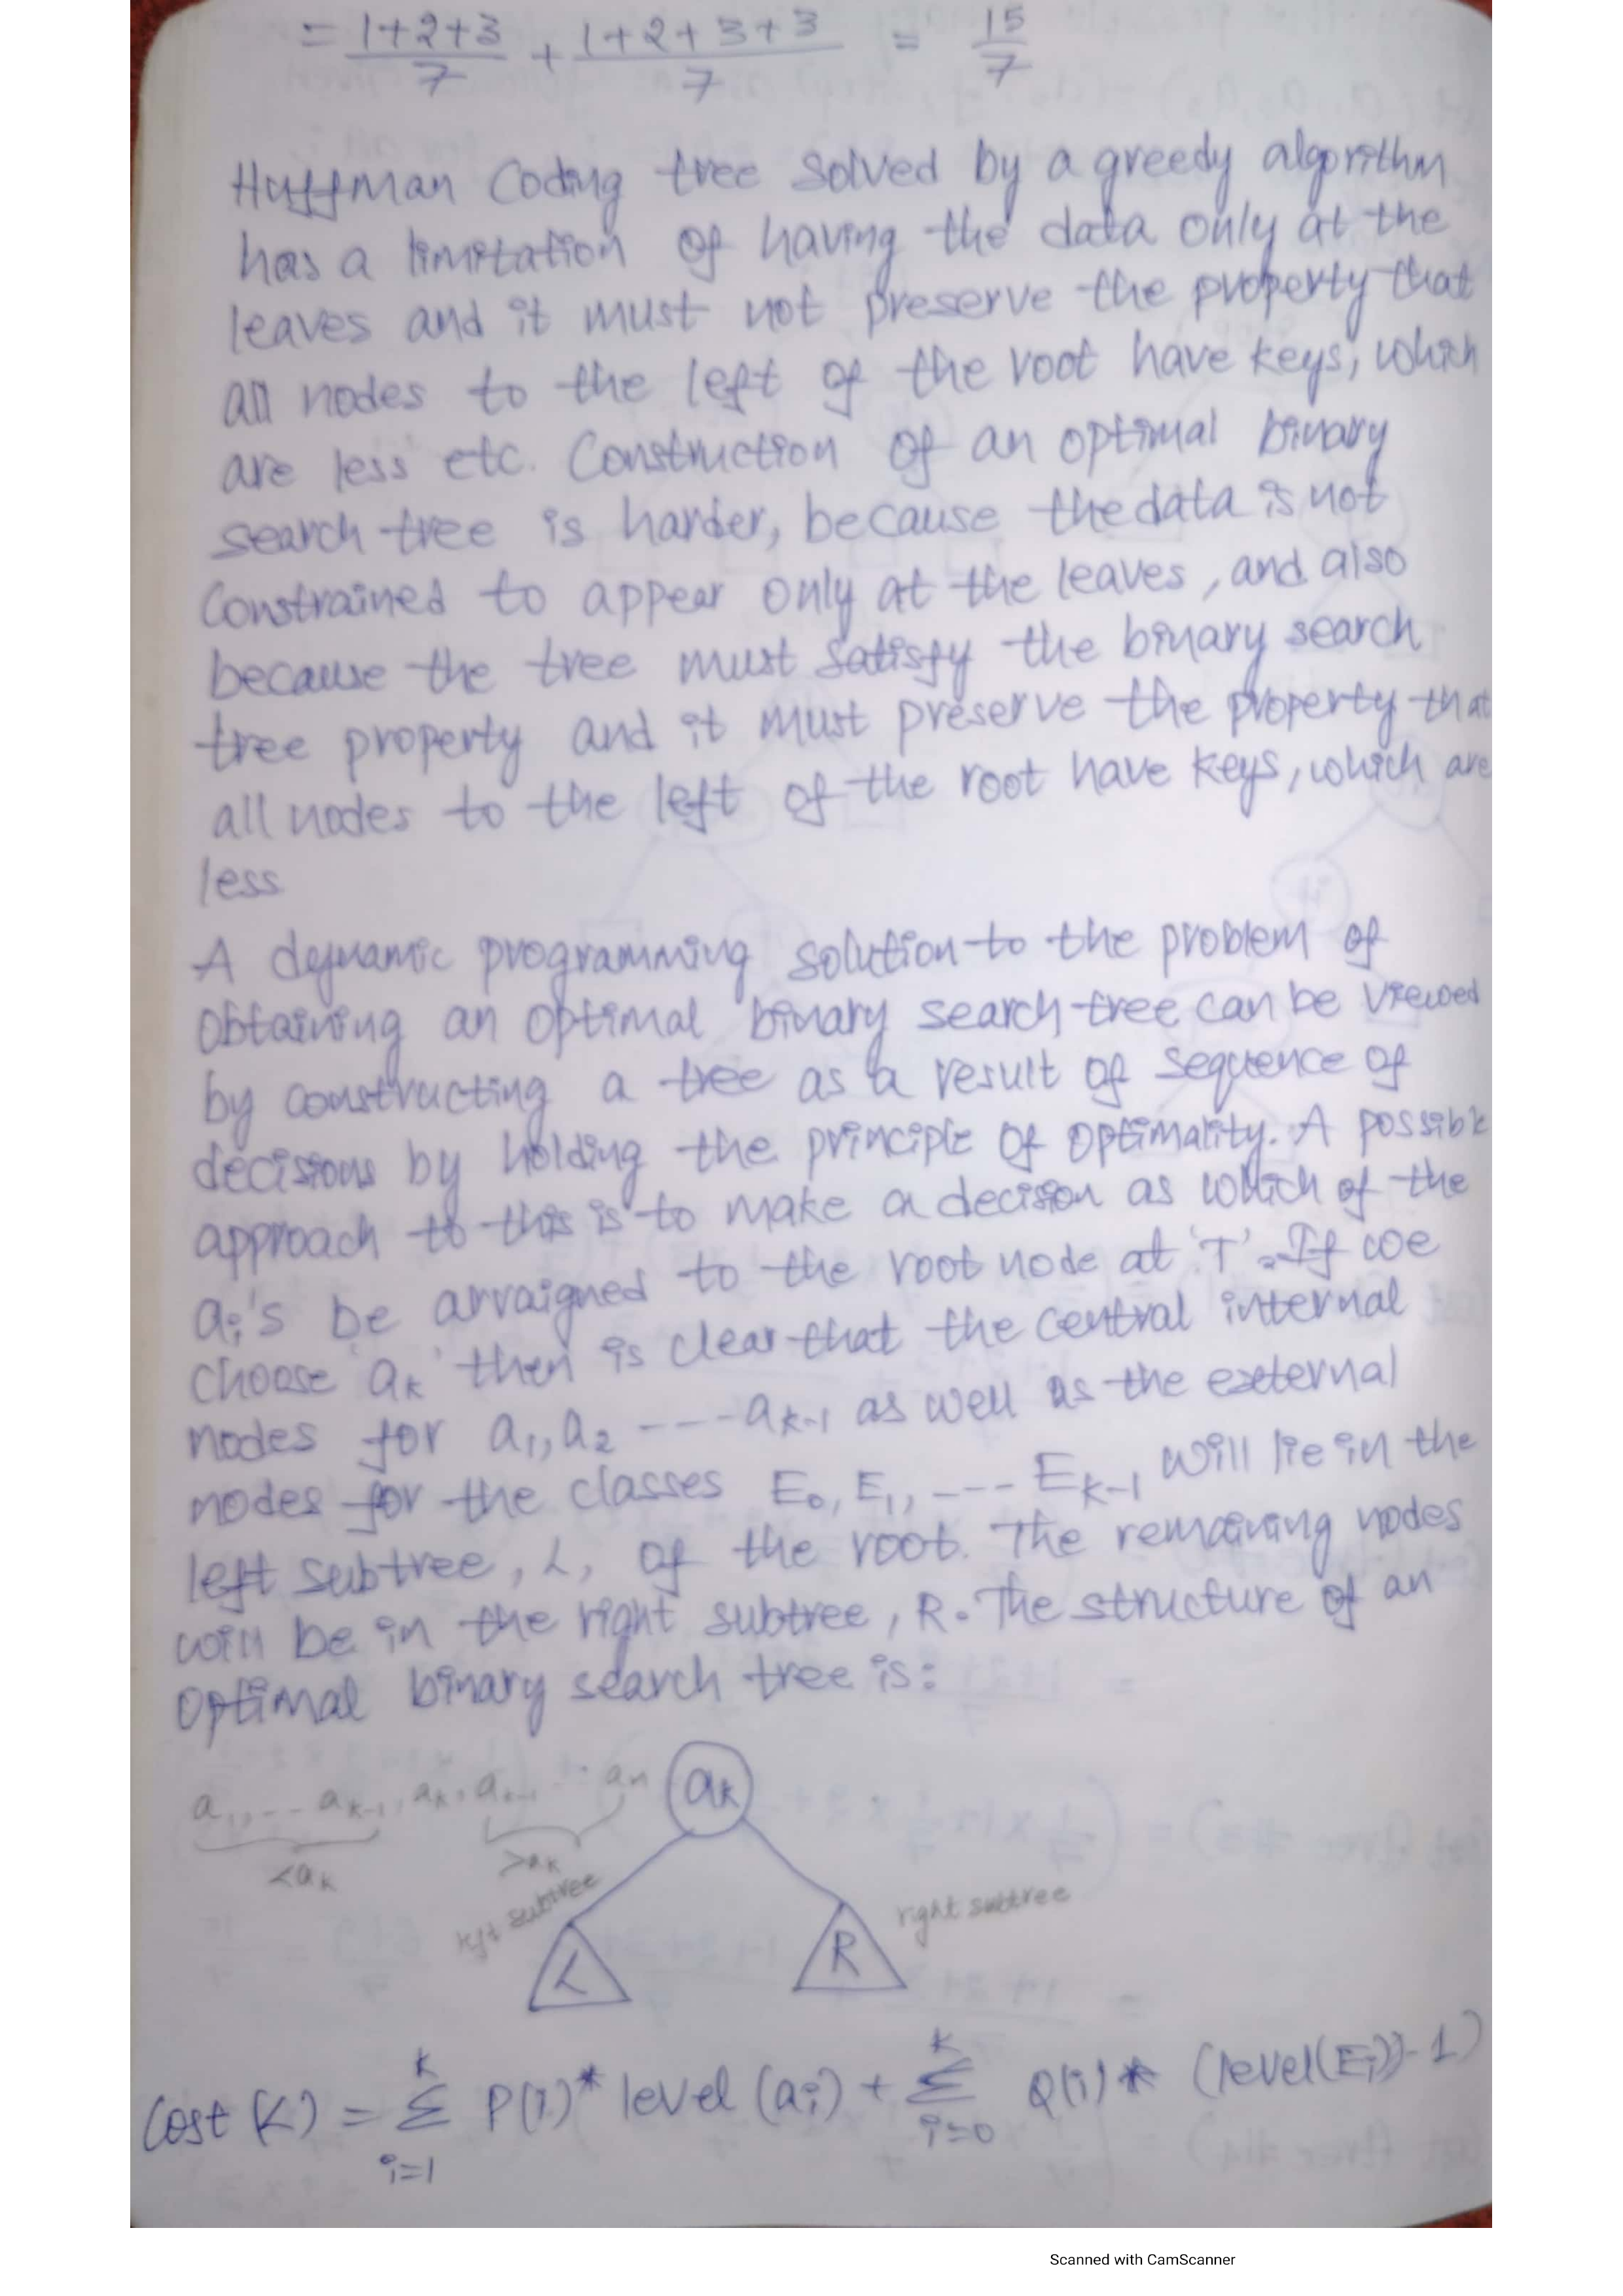 = 1+2+3/7 + 1+2+3+3/7 = 15/7
Huffman Coding tree solved by a greedy algorithm
has a limitation of having the data only at the
leaves and it must not preserve the property that
all nodes to the left of the root have keys, which
are less etc. Construction of an optimal binary
search tree is harder, because the data is not
constrained to appear only at the leaves, and also
because the tree must satisfy the binary search
tree property and it must preserve the property that
all nodes to the left of the root have keys, which are
less
A dynamic programming solution to the problem of
obtaining an optimal binary search tree can be viewed
by constructing a tree as a result of sequence of
decisions by holding the principle of optimality. A possible
approach to this is to make a decision as which of the
ai's be arraigned to the root node at 'T'. If we
choose 'ak' then is clear that the central internal
nodes for a1, a2 ---- ak-1 as well as the external
nodes for the classes E0, E1, ---- Ek-1 will lie in the
left subtree, L, of the root. The remaining nodes
will be in the right subtree, R. The structure of an
optimal binary search tree is:
a1, -- ak-1, ak, ak-1 ... an
ak
<ak
>ak
left subtree
right subtree
L
R
Cost (L) = K Σ i=1 P(i)* level (ai) + K Σ i=0 Q(i) * (level(Ei)-1)
Scanned with CamScanner